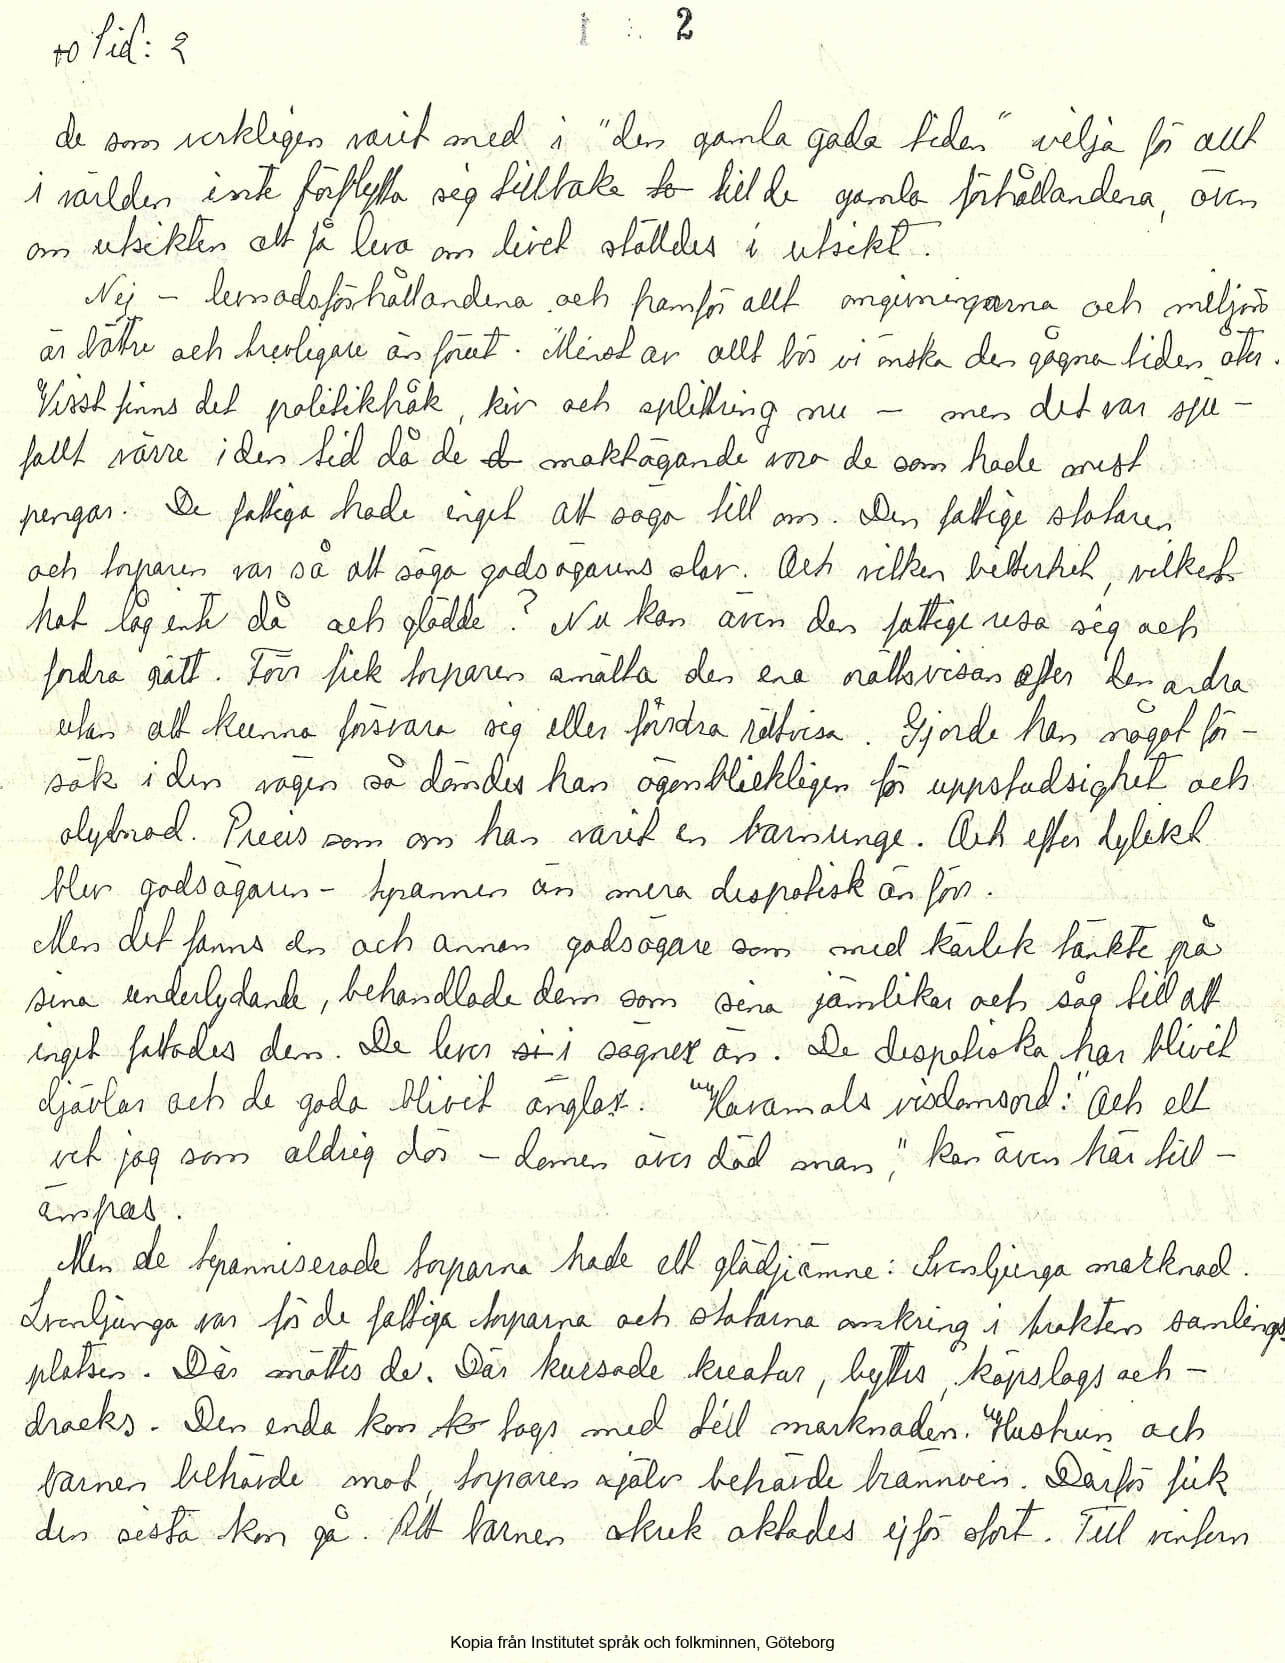 Sid: 2
2
de som verkligen varit med i "den gamla goda tiden" vilja för allt
i världen inte förflytta seg tillbaka to till de gamla förhållandena, även
om utsikten att få leva om livet ställdes i utsikt.
Nej - levnadsförhållandena och framför allt omgivningarna och miljön
är bättre och trevligare än förut. Minst av allt bör vi önska den gågna tiden åter.
Visst finns det politikbråk, kiv och splittring nu - men det var sju-
fallt värre i den tid då de d maktägande voro de som hade mest
pengar. De fattiga hade inget att säga till om. Den fattige stataren
och torparen var så att säga godsägarens slav. Och vilken bitterhet, vilket
hat låg inte då och glödde? Nu kan även den fattige resa sig och
fordra rätt. Förr fick torparen smälta den ena orättvisan efter den andra
utan att kunna försvara sig eller fordra rättvisa. Gjorde han något för-
sök i den vägen så dömdes han ögonblickligen för uppstudsighet och
olydnad. Precis som om han varit en barnunge. Och efter dylikt
blev godsägaren - tyrannen än mera despotisk än förr.
Men det fanns en och annan godsägare som med kärlek tänkte på
sina underlydande, behandlade dem som sina jämlikar och såg till att
inget fattades dem. De lever si i sägner än. De despotiska har blivit
djävlar och de goda blivit änglar. Havamals visdomsord: "Och ett
vet jag som aldrig dör - domen över död man," kan även här till-
ämpas.
Men de tyranniserade torparna hade ett glädjeämne: Svenljunga marknad.
Svenljunga var för de fattiga torparna och statarna omkring i trakten samlings
platsen. Där möttes de. Där kursade kreatur, byttes, köpslogs och -
dracks. Den enda kon to togs med till marknaden. Hustrun och
barnen behövde mat, torparen själv behövde brännvin. Därför fick
den sista kon gå. Att barnen skrek aktades ej för stort. Till vintern
Kopia från Institutet språk och folkminnen, Göteborg